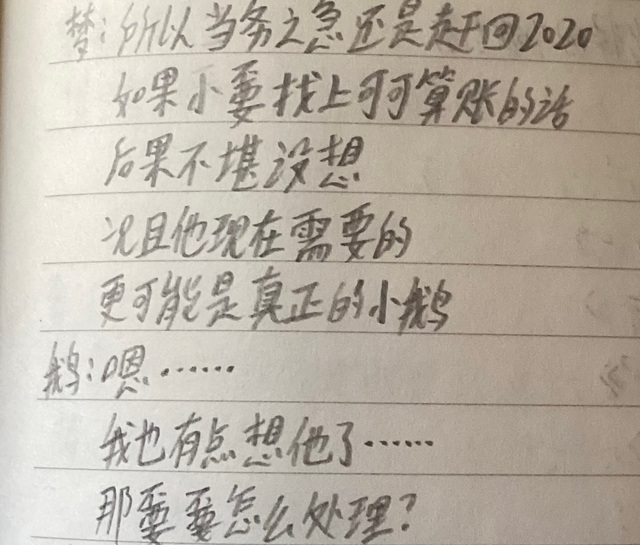 梦：所以当务之急还是赶回2020
如果小要找上可可算账的话
后果不堪设想
况且他现在需要的
更可能是真正的小鹅
鹅：嗯……
我也有点想他了……
那要要怎么处理？